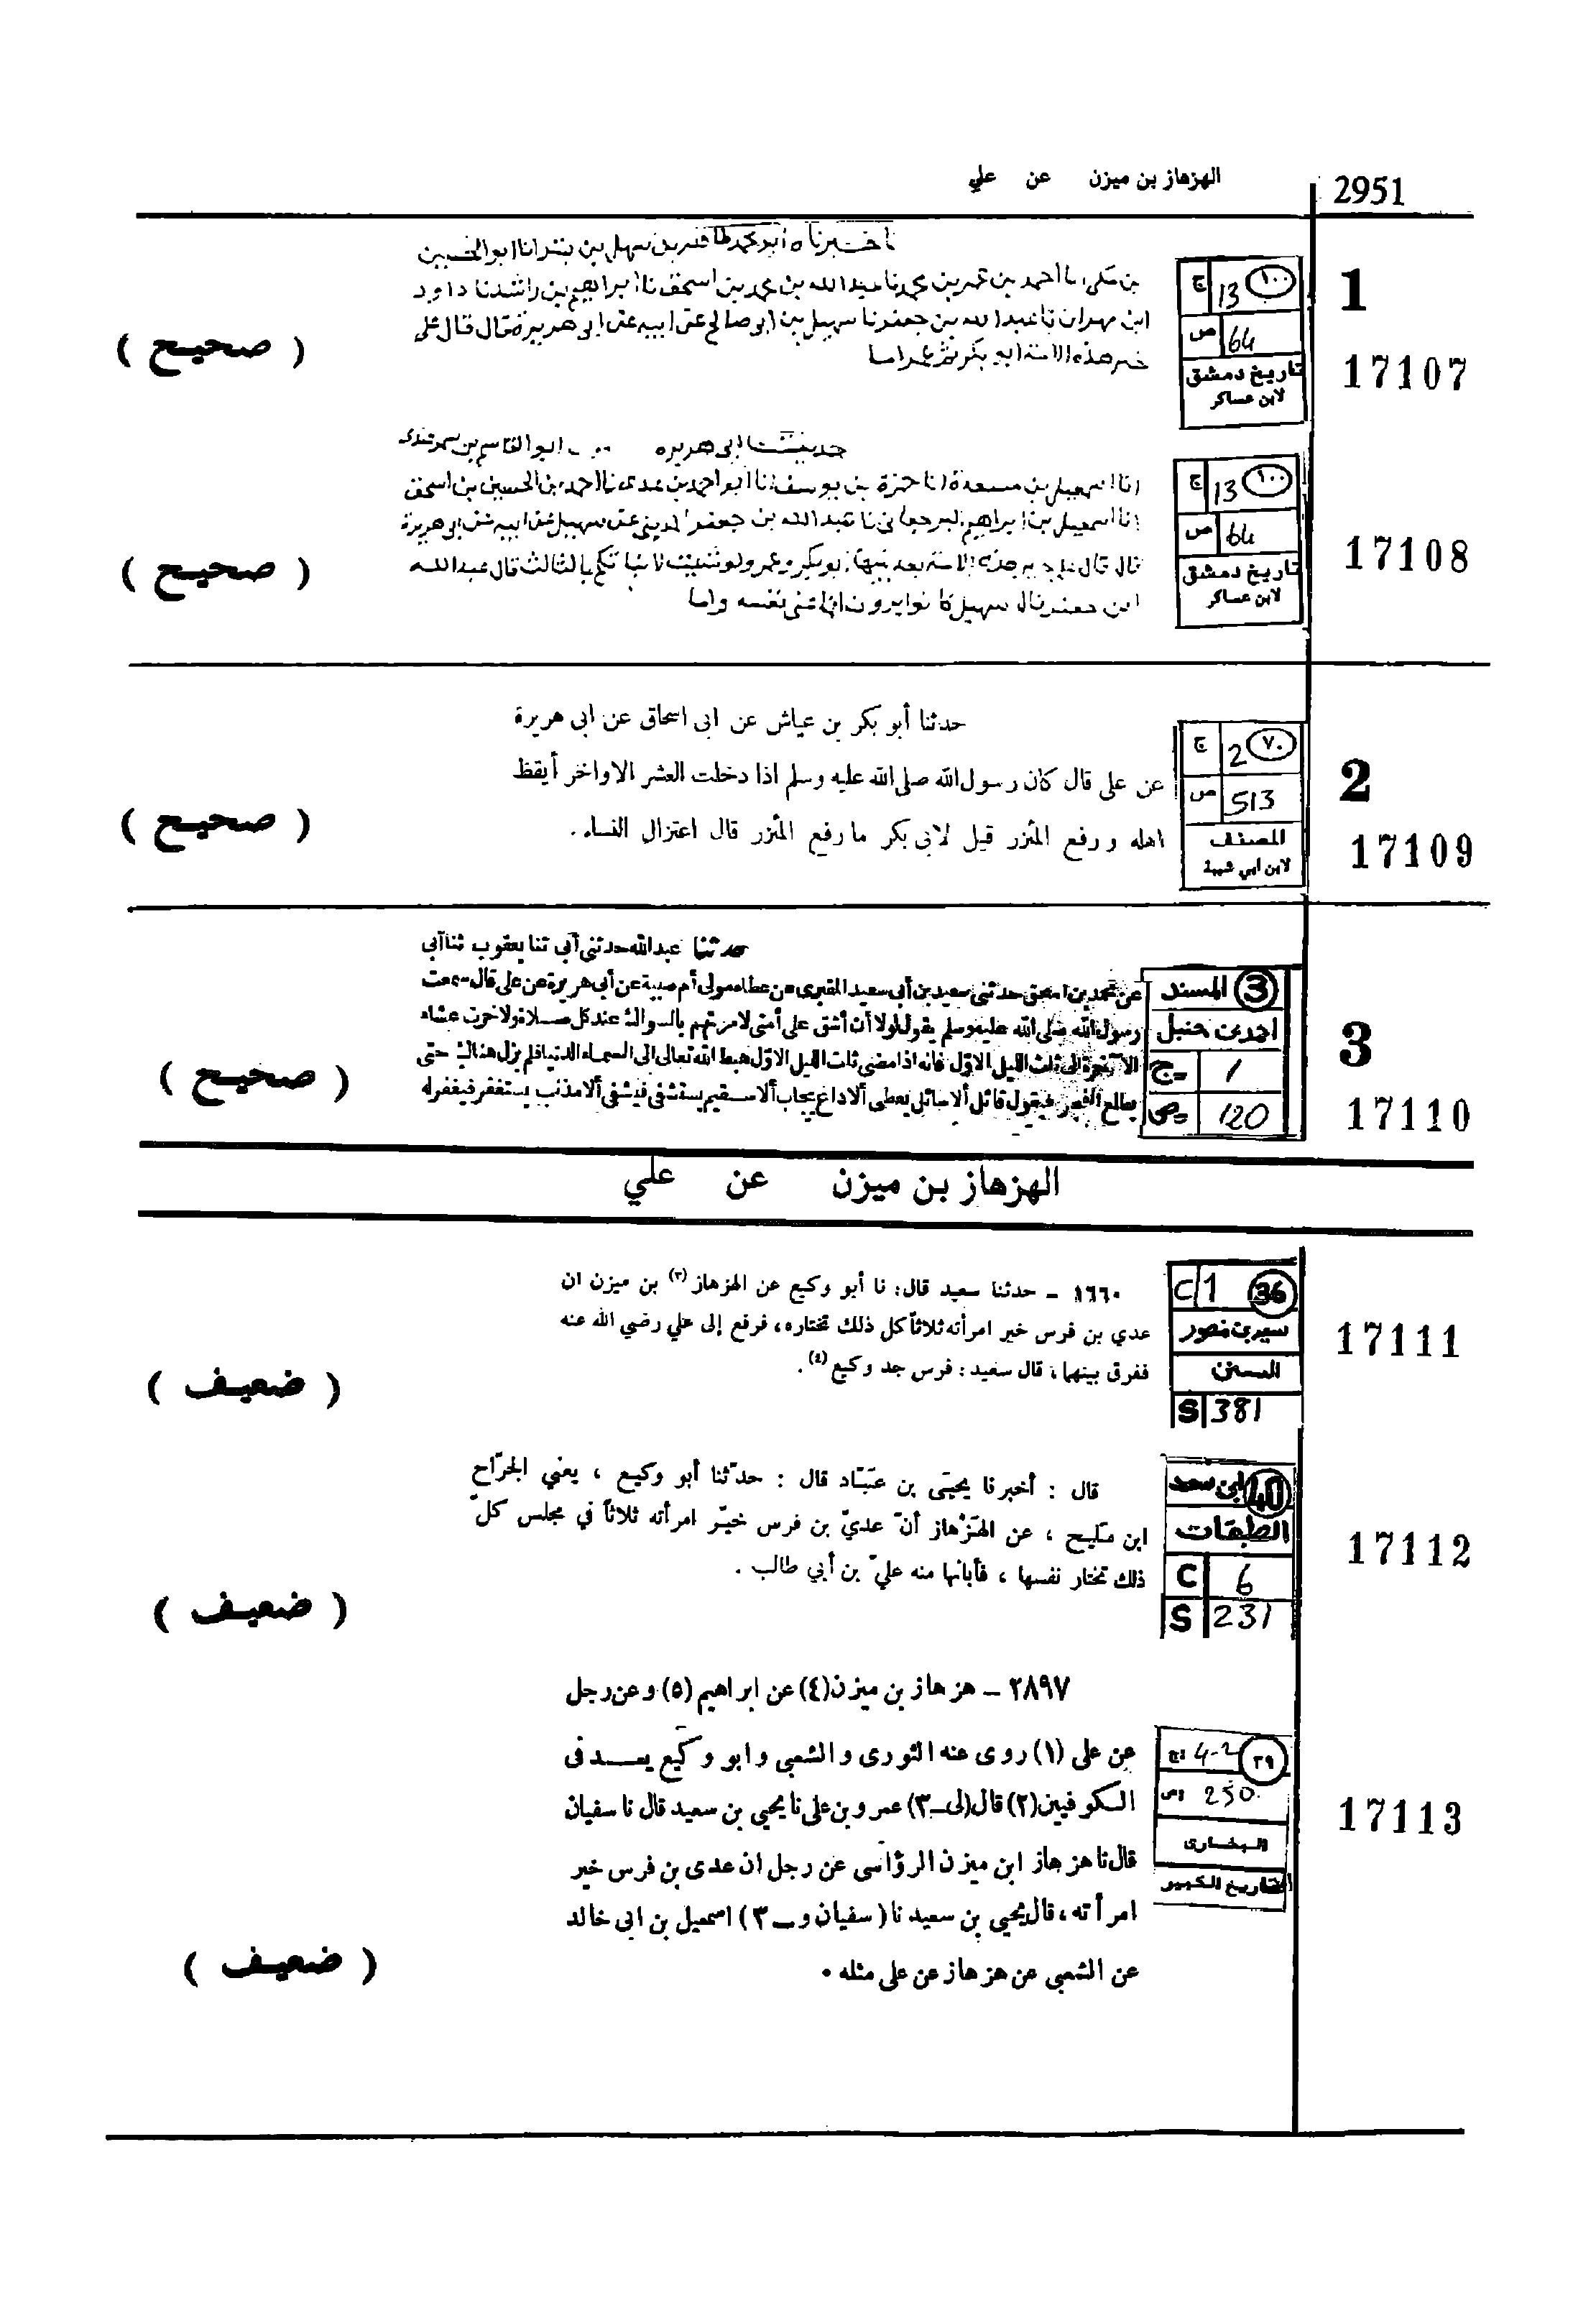 2951
الهزهاز بن ميزن عن علي
1
17107
١٠٠ 13 ج
64 ص
تاريخ دمشق
لابن عساكر
بن مكي احمد بن عبد الله بن محمد بن اسحق نا ابراهيم بن راشد نا داود
ابن مهران نا عبد الله بن جعفر نا سهيل بن ابو صالح عن ابيه عن ابى هريرة قال قال على
خير هذه الامة ابو بكر ثم عمر
( صحيح )
17108
١٠٠ 13 ج
64 ص
تاريخ دمشق
لابن عساكر
ابى هريره ابو القاسم بن سمرقندى
انا اسمعيل بن مسعدة انا حمزة بن يوسف انا ابو احمد بن عدى نا احمد بن الحسين بن اسحق
انا اسمعيل بن ابراهيم نا عبد الله بن جعفر المدينى عن سهيل عن ابيه عن ابى هريرة
قال قال على هذه الامة بعد نبيها ابو بكر وعمر ولو شئت لانباتكم بالثالث قال عبد الله
ابن جعفر قال سهيل كانوا يرون انه عنى نفسه
( صحيح )
2
17109
٧٠ 2 ج
513 ص
المصنف
لابن ابي شيبة
حدثنا أبو بكر بن عياش عن ابى اسحاق عن ابى هريرة
عن على قال كان رسول الله صلى الله عليه وسلم اذا دخلت العشر الاواخر أيقظ
اهله ورفع المئزر قيل لابى بكر ما رفع المئزر قال اعتزال النساء .
( صحيح )
3
17110
3 المسند
احمد بن حنبل
ج 1
ص 120
حدثنا عبدالله حدثنى أبى ثنا يعقوب ثنا أبى
عن محمد بن اسحق حدثنى سعيد بن أبى سعيد المقبرى عن عطاء مولى أم صبية عن أبى هريرة عن على قال سمعت
رسول الله صلى الله عليه وسلم يقول لولا أن أشق على أمتى لامرتهم بالسواك عند كل صلاة ولاخرت عشاء
الآخرة الى ثلث الليل الاول فانه اذا مضى ثلث الليل الاول هبط الله تعالى الى السماء الدنيا فلم يزل هنالك حتى
يطلع الفجر فيقول قائل ألا سائل يعطى ألا داع يجاب ألا سقيم يستشفى فيشفى ألا مذنب يستغفر فيغفر له
( صحيح )
الهزهاز بن ميزن عن علي
17111
36 C 1
سعيد بن منصور
السنن
S 381
١٦٦٠ - حدثنا سعيد قال: نا أبو وكيع عن الهزهاز (٣) بن ميزن ان
عدي بن فرس خير امرأته ثلاثاً كل ذلك تختاره، فرفع إلى علي رضي الله عنه
ففرق بينهما، قال سعيد: فرس جد وكيع (٤).
( ضعيف )
17112
40 ابن سعد
الطبقات
C 6
S 231
قال : أخبرنا يحيَى بن عبّاد قال : حدّثنا أبو وكيع ، يعني الجرّاح
ابن مَليح ، عن الهَزْهاز أنّ عديّ بن فرس خيّر امرأته ثلاثاً في مجلس كلّ
ذلك تختار نفسها ، فأبانها منه عليّ بن أبي طالب .
( ضعيف )
17113
٣٩ ج 4-2
ص 250
البخارى
التاريخ الكبير
٢٨٩٧ - هزهاز بن ميزن (٤) عن ابراهيم (٥) وعن رجل
عن على (١) روى عنه الثورى والشعبى وابو وكيع يعد فى
الكوفيين (٢) قال (لى-٣) عمرو بن على نا يحيى بن سعيد قال نا سفيان
قال نا هزهاز ابن ميزن الرؤاسى عن رجل ان عدى بن فرس خير
امرأته، قال يحيى بن سعيد نا (سفيان و-٣) اسمعيل بن ابى خالد
عن الشعبى عن هزهاز عن على مثله .
( ضعيف )